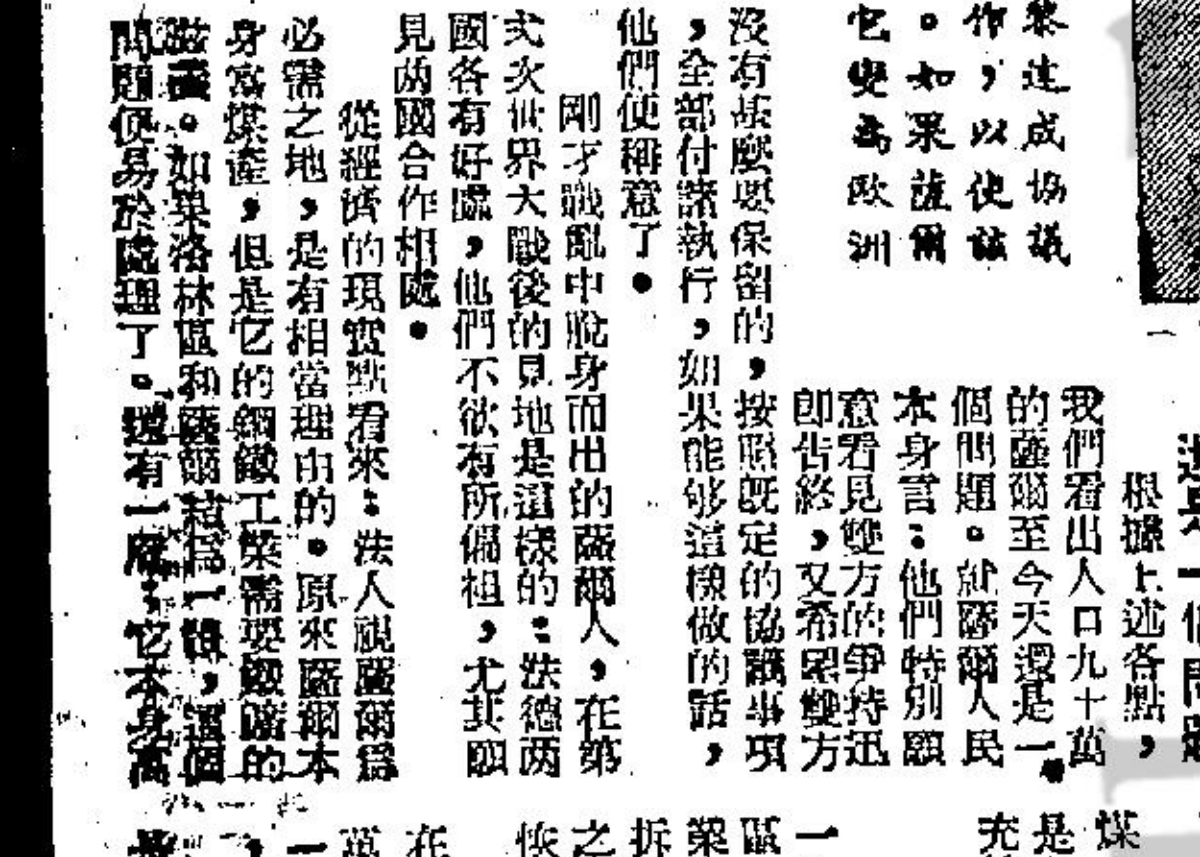 黎達成協議
作，以使該
。如果薩爾
它變為歐洲
根據上述各點，
我們看出人口九十萬
的薩爾至今天還是一
個問題。就薩爾人民
本身言：他們特別願
意看見雙方的爭持迅
即告終，又希望雙方
沒有甚麼要保留的，按照既定的協議事項
，全部付諸執行，如果能够這樣做的話，
他們便稱意了。
剛才戰亂中脫身而出的薩爾人，在第
式次世界大戰後的見地是這樣的：法德两
國各有好處，他們不欲有所偏袒，尤其願
見两國合作相處。
從經濟的現實點看來：法人視薩爾爲
必需之地，是有相當理由的。原來薩爾本
身富煤產，但是它的鋼鐵工業需要鐵礦的
滋養。如果洛林區和薩爾結爲一體，這個
問題便易於處理了。還有一層，它本身萬
煤
是
充
一
區
業
拆
之
恢
在
萬
一